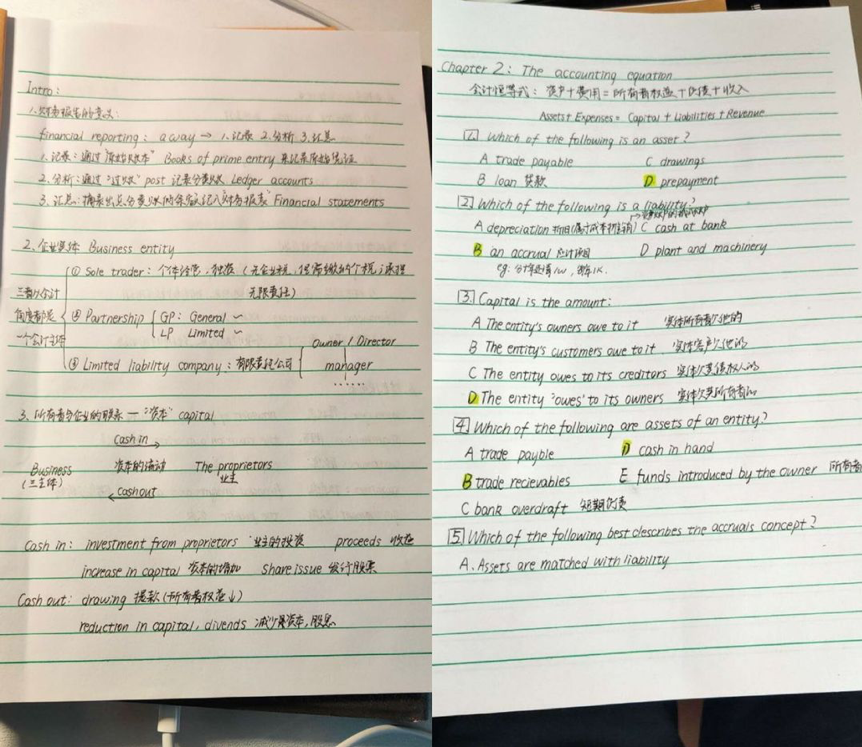 Intro:
1.财务报告的意义:
financial reporting: a way → 1.记录 2.分析 3.汇总
1.记录:通过"原始账本" Books of prime entry 来记录原始凭证
2.分析:通过"过账" post 记录分类账 Ledger accounts
3.汇总:摘录出总分类账的余额记入"财务报表" Financial statements
2.企业实体 Business entity
① Sole trader: 个体经营,独资 (无企业税,但需缴纳个税;承担
无限责任)
三者从会计
角度都是
一个会计主体
② Partnership GP: General ~
LP Limited ~
Owner / Director
③ Limited liability company: 有限责任公司 manager
......
3.所有者与企业的联系—"资本" capital
Cash in →
Business 资本的流动 The proprietors
(三主体) 业主
← Cash out
Cash in: investment from proprietors 业主的投资 proceeds 收益
increase in capital 资本的增加 Share issue 发行股票
Cash out: drawing 提款(所有者权益↓)
reduction in capital, divends 减少资本,股息
Chapter 2: The accounting equation
会计恒等式: 资产+费用=所有者权益+负债+收入
Assets + Expenses = Capital + Liabilities + Revenue
1. Which of the following is an asset?
A trade payable C drawings
B loan 贷款 D prepayment
2. Which of the following is a liability?
A depreciation 折旧 C cash at bank
B an accrual 应计项目 D plant and machinery
3. Capital is the amount:
A The entity's owners owe to it 实体所有者欠他的
B The entity's customers owe to it 实体客户欠他的
C The entity owes to its creditors 实体欠其债权人的
D The entity "owes" to its owners 实体欠其所有者的
4 Which of the following are assets of an entity?
A trade payble D cash in hand
B trade recievables E funds introduced by the owner 所有者
C bank overdraft 短期负债
5 Which of the following best describes the accruals concept?
A. Assets are matched with liability